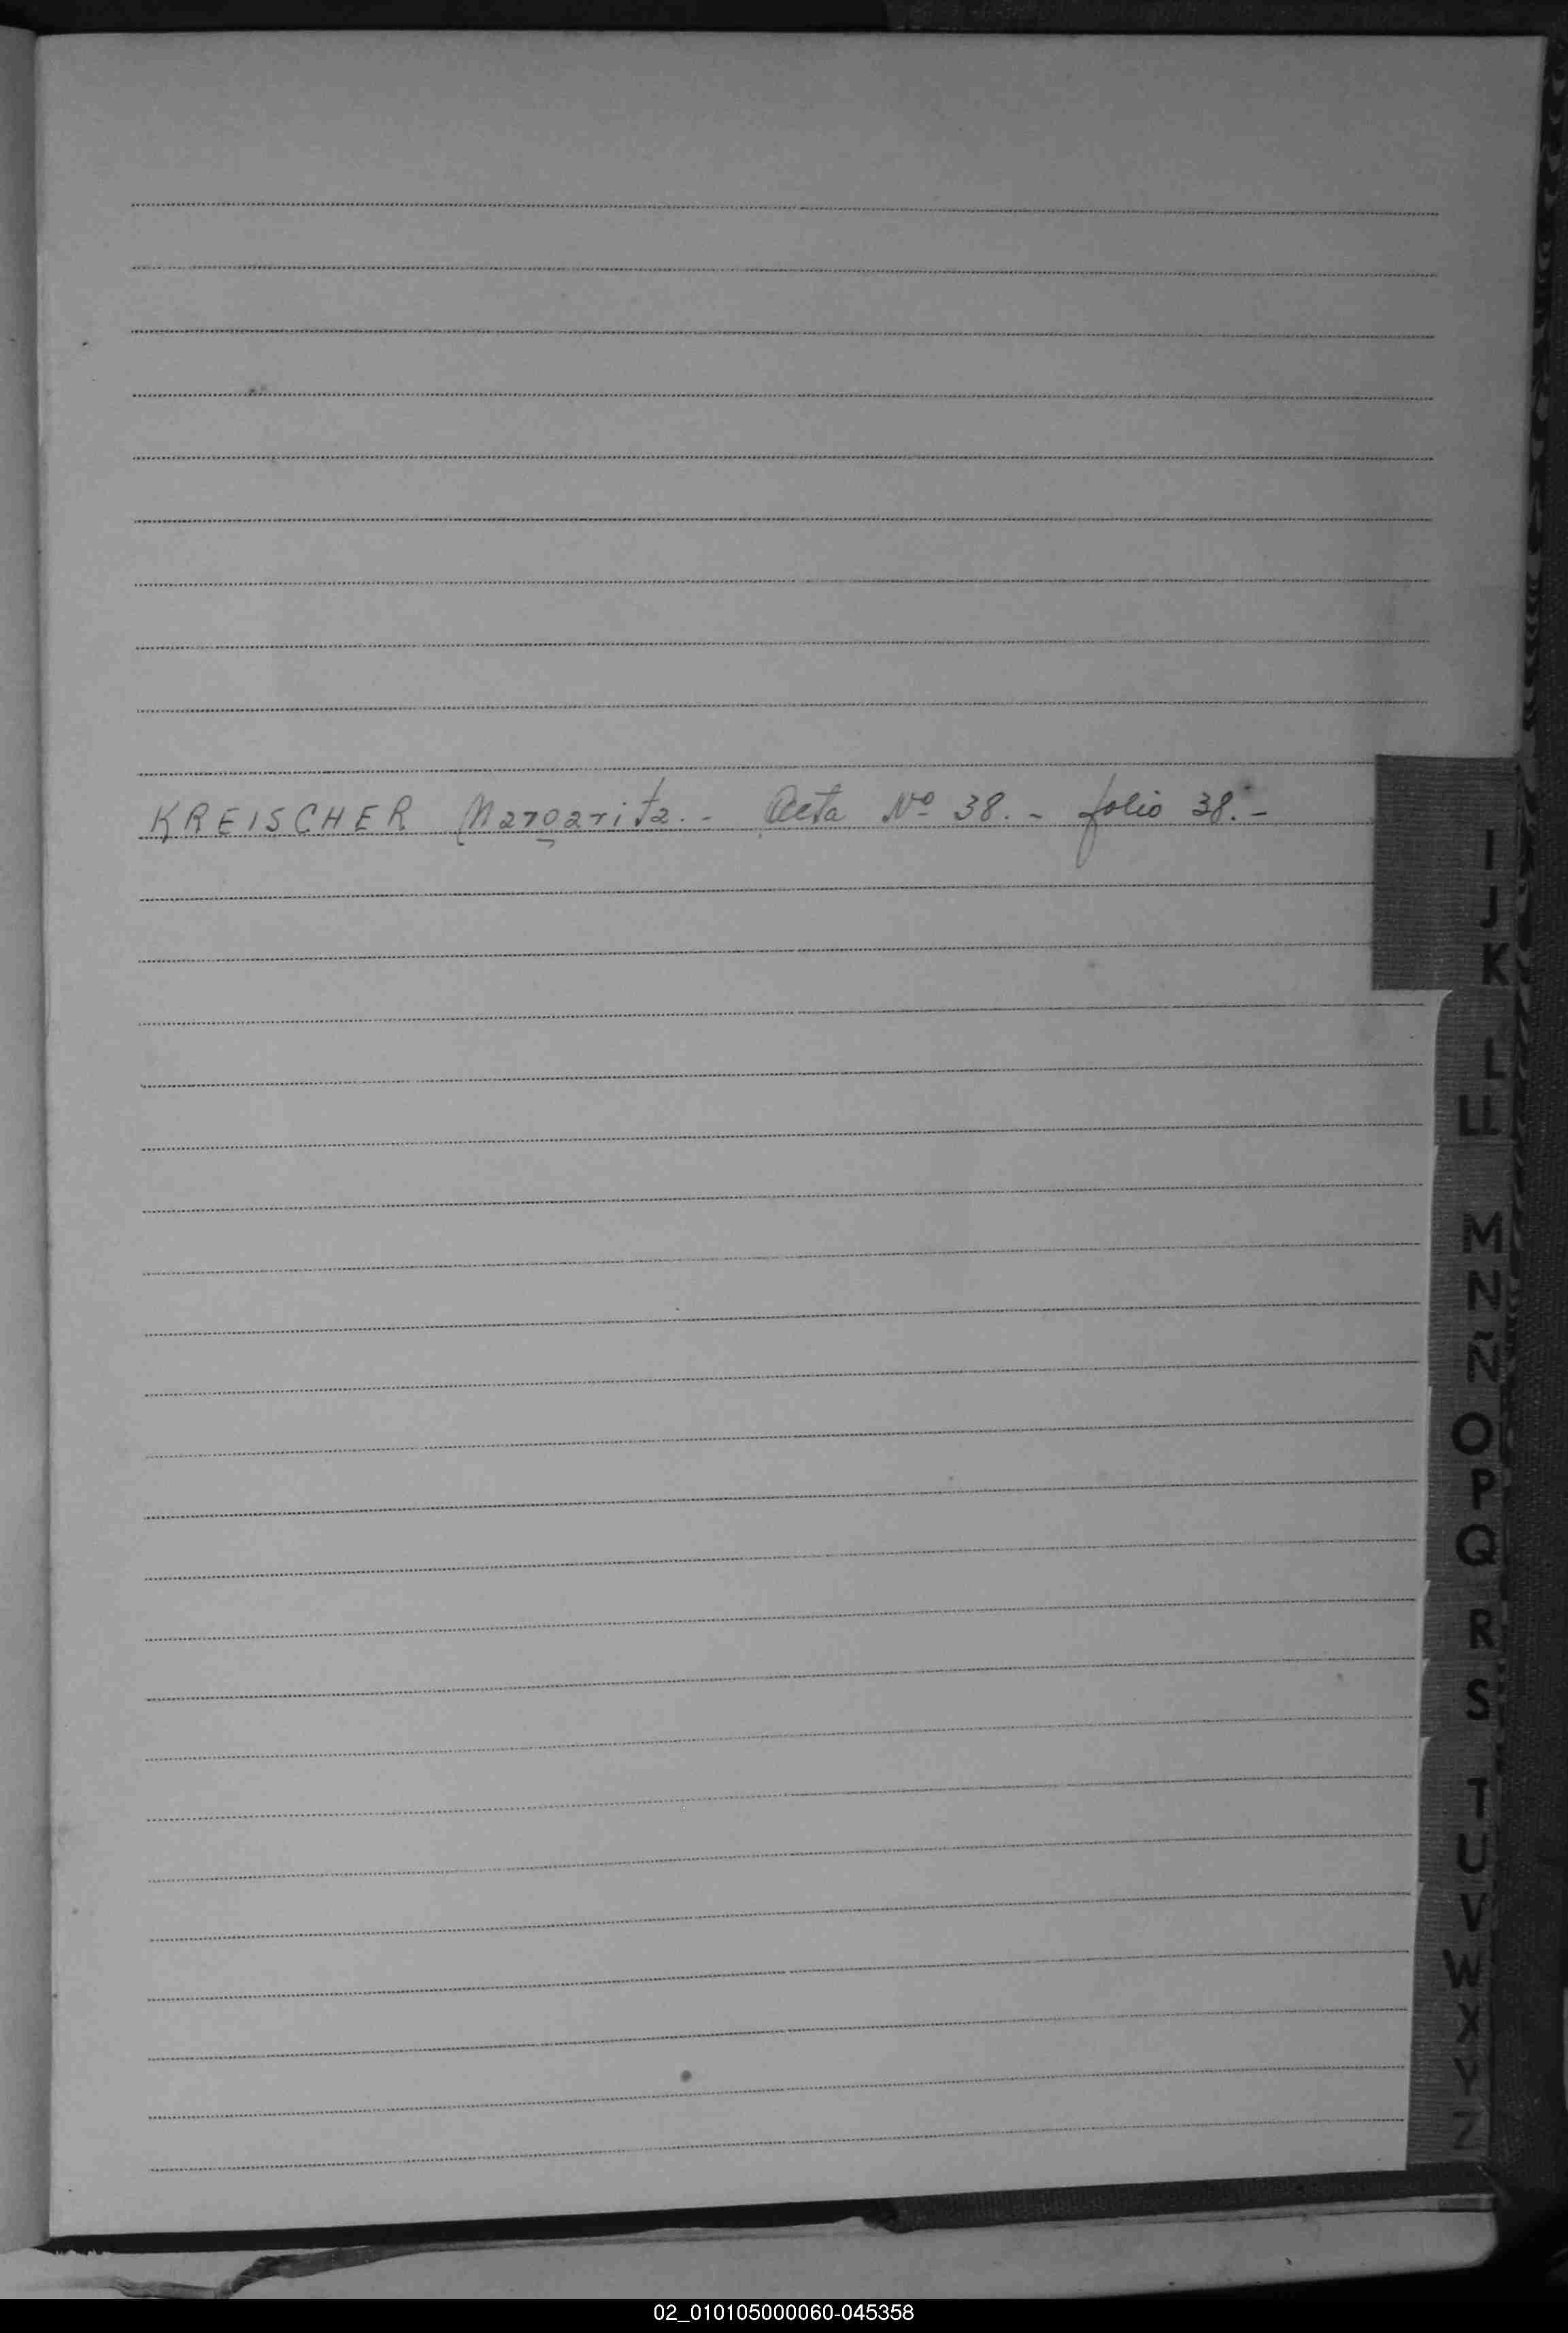 KREISCHER Margarita.- Acta Nº 38.- folio 38.-
I
J
K
L
LL
M
N
Ñ
O
P
Q
R
S
T
U
V
W
X
Y
Z
02_010105000060-045358